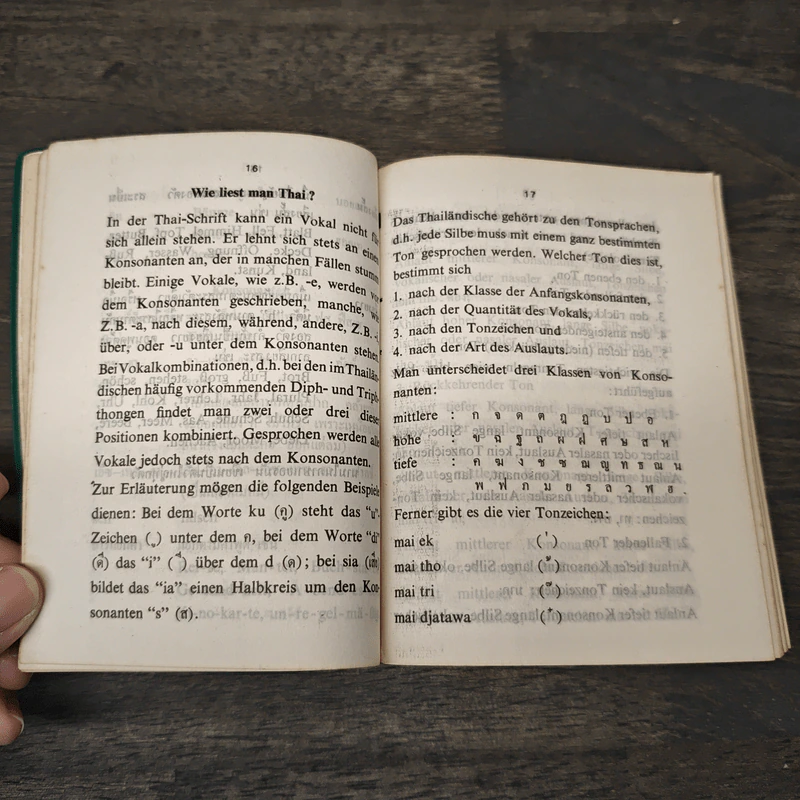 16
Wie liest man Thai?
In der Thai-Schrift kann ein Vokal nicht für
sich allein stehen. Er lehnt sich stets an einen
Konsonanten an, der in manchen Fällen stumm
bleibt. Einige Vokale, wie z.B. -e, werden vor
dem Konsonanten geschrieben, manche, wie
Z.B. -a, nach diesem, während, andere, Z.B.
über, oder -u unter dem Konsonanten stehen.
Bei Vokalkombinationen, d.h. bei den im Thailän-
dischen häufig vorkommenden Diph- und Triph-
thongen findet man zwei oder drei dieser
Positionen kombiniert. Gesprochen werden alle
Vokale jedoch stets nach dem Konsonanten.
Zur Erläuterung mögen die folgenden Beispiele
dienen: Bei dem Worte ku (กู) steht das "u"
Zeichen ( ู) unter dem ก, bei dem Worte "di"
(ดี) das "i" ( ี) über dem d (ด); bei sia
bildet das "ia" einen Halbkreis um den Kon-
sonanten "s" (ส).
17
Das Thailändische gehört zu den Tonsprachen,
d.h. jede Silbe muss mit einem ganz bestimmten
Ton gesprochen werden. Welcher Ton dies ist,
bestimmt sich
1. nach der Klasse der Anfangskonsonanten,
2. nach der Quantität des Vokals,
3. nach den Tonzeichen und
4. nach der Art des Auslauts.
Man unterscheidet drei Klassen von Konso-
nanten:
mittlere : ก จ ด ต ฎ ฏ บ ป อ
hohe : ข ฉ ฐ ถ ผ ฝ ศ ษ ส ห
tiefe : ค ฆ ง ช ซ ฌ ญ ฑ ฒ ณ น
พ ฟ ภ ม ย ร ล ว ฬ ฮ .
Ferner gibt es die vier Tonzeichen:
mai ek ( ่ )
mai tho ( ้ )
mai tri ( ๊ )
mai djatawa ( ๋ )